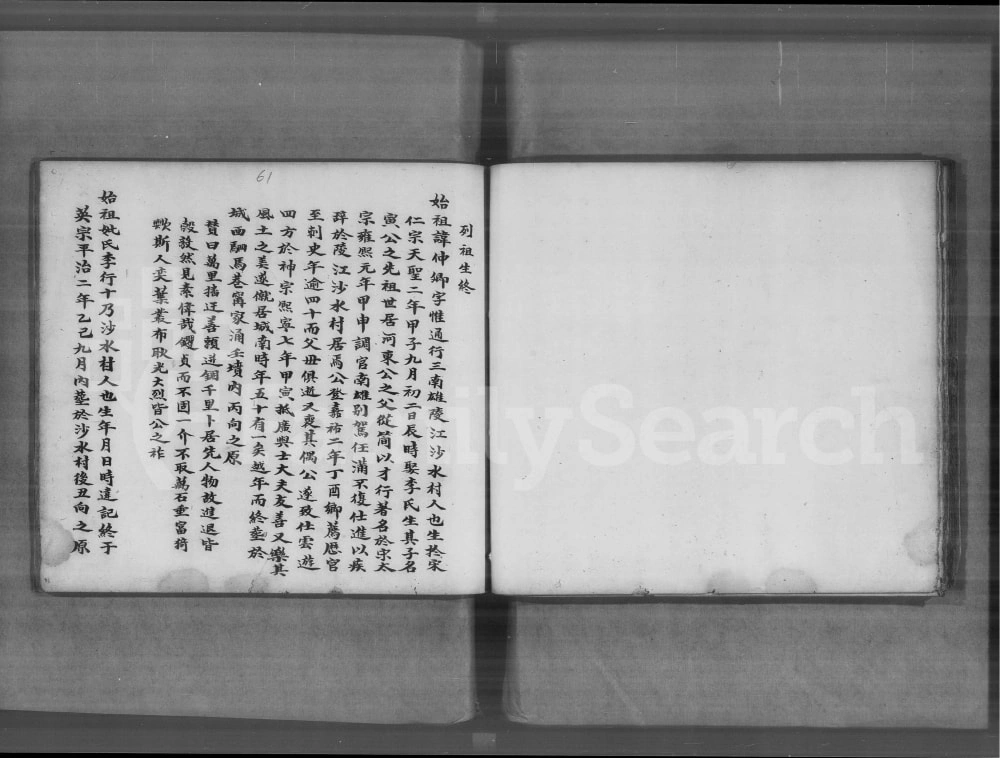 61
列祖生終
始祖諱仲卿字惟通行三南雄陵江沙水村人也生於宋
仁宗天聖二年甲子九月初二日辰時娶李氏生其子名
寅公之先祖世居河東公之父從簡以才行著名於宋太
宗雍熙元年甲申調官南雄别駕任滿不復仕進以疾
辭於陵江沙水村居焉公登嘉祐二年丁酉鄉薦歷官
至刺史年逾四十而父毋俱逝又喪其偶公遂致仕雲遊
四方於神宗熙寧七年甲寅抵廣與士大夫友善又樂其
風土之美遂僦居城南時年五十有一矣越年而終葬於
城西駟馬巷甯家涌壬墳内丙向之原
賛曰萬里搐迂善頼逆錮千里卜居先人物故進退皆
毅然見素偉哉貞而不固一介不取萬石重富猗
歟斯人奕葉叢布耿光大烈皆公之祚
始祖妣氏李行十乃沙水村人也生年月日時遺記終于
英宗平治二年乙己九月内葬於沙水村後丑向之原
FamilySearch